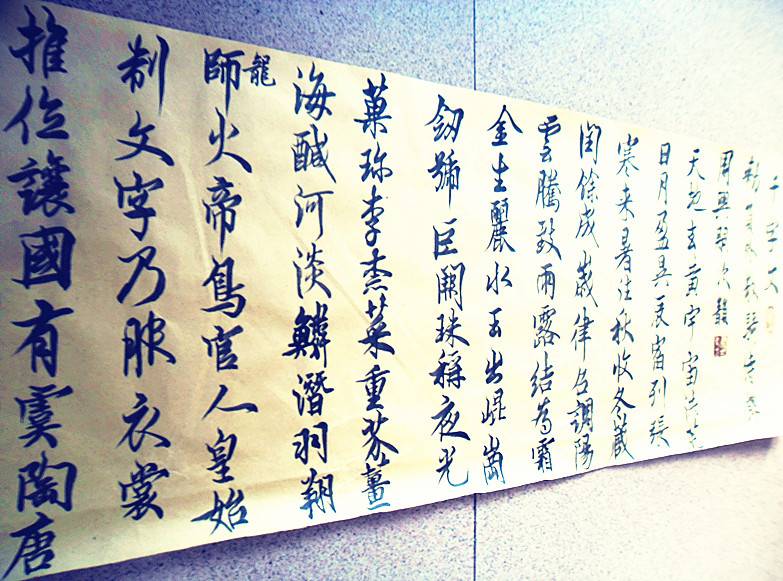 千字文
周興嗣次韻
天地玄黃宇宙洪荒
日月盈昃辰宿列張
寒来暑往秋收冬藏
閏餘成歲律呂調陽
雲騰致雨露結為霜
金生麗水玉出崐崗
劒號巨闕珠稱夜光
菓珎李柰菜重芥薑
海鹹河淡鱗潛羽翔
龍師火帝鳥官人皇始
制文字乃服衣裳
推位讓國有虞陶唐